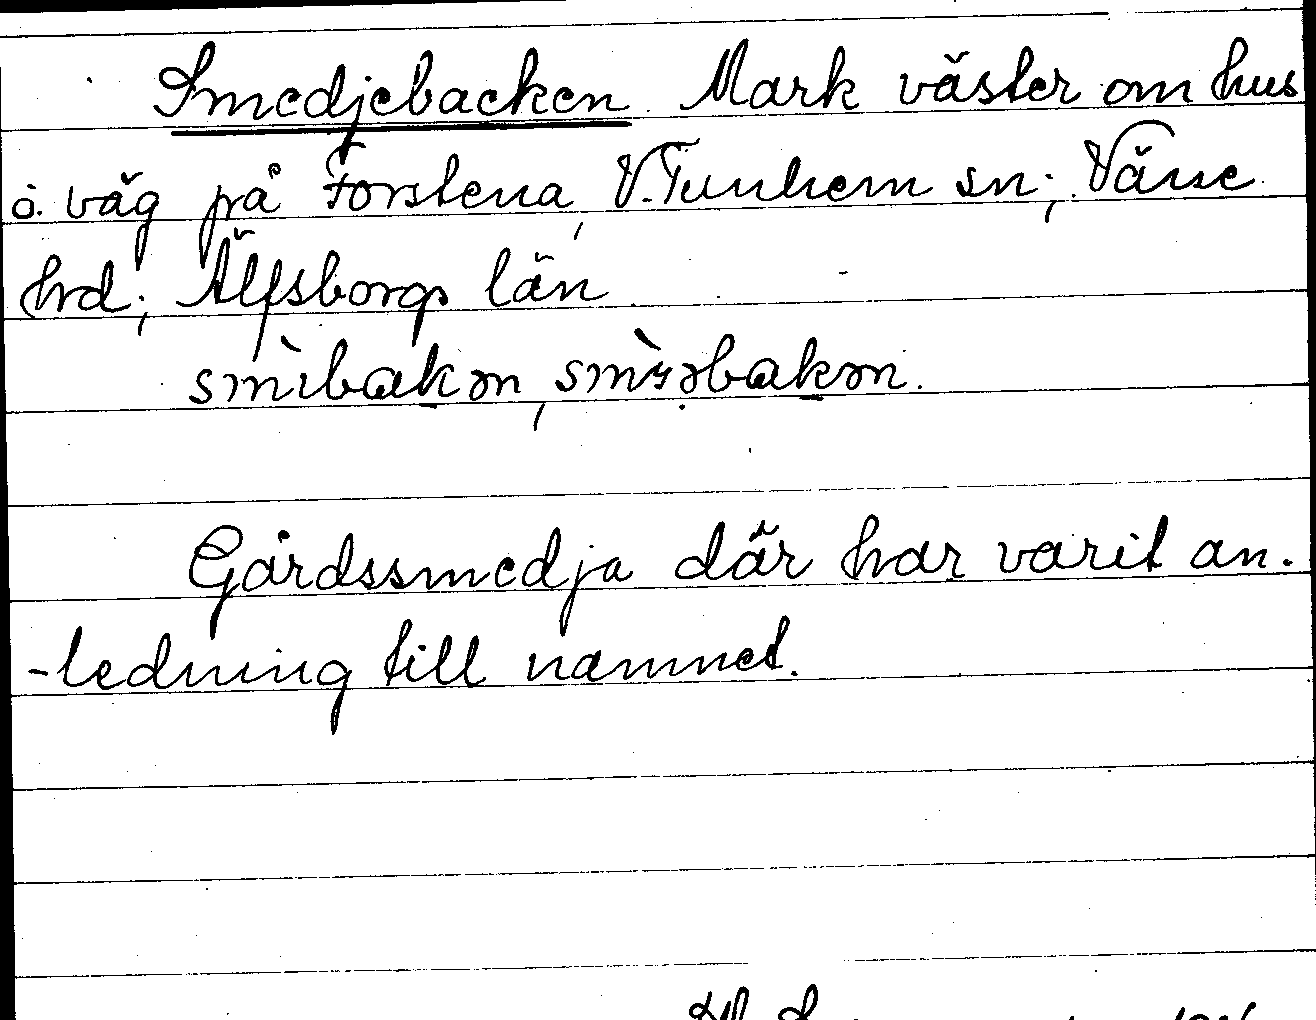 Smedjebacken. Mark väster om hus
o. väg på Forstena, V. Tunhem sn; Väne
hrd; Älfsborgs län
smìbakən, smìɪəbakən.
Gårdssmedja där har varit an-
-ledning till namnet.